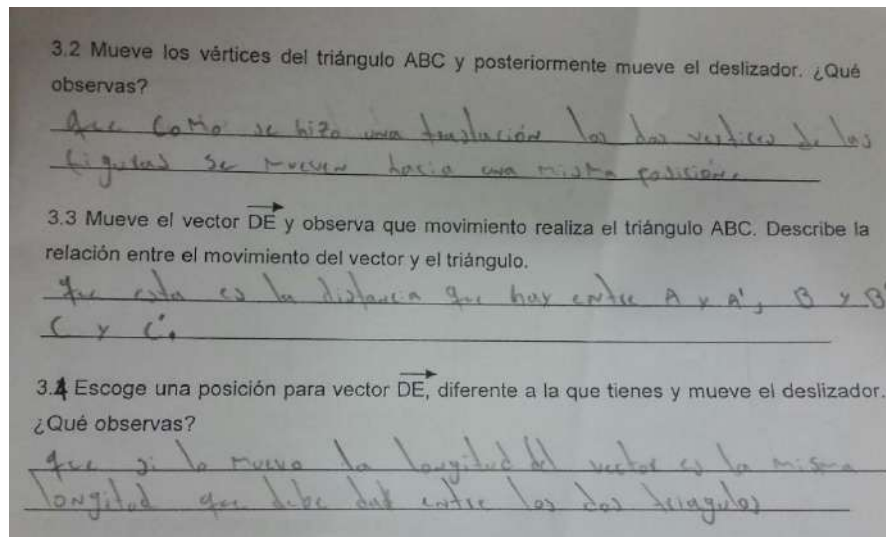 3.2 Mueve los vértices del triángulo ABC y posteriormente mueve el deslizador. ¿Qué
observas?
Que como se hizo una traslación los dos vertices de las
figuras se mueven hacia una misma posición.
3.3 Mueve el vector DE y observa que movimiento realiza el triángulo ABC. Describe la
relación entre el movimiento del vector y el triángulo.
que esta es la distancia que hay entre A y A', B y B'
C y C'.
3.4 Escoge una posición para vector DE, diferente a la que tienes y mueve el deslizador.
¿Qué observas?
que si lo muevo la longitud del vector es la misma
longitud que debe dar entre los dos triagulos